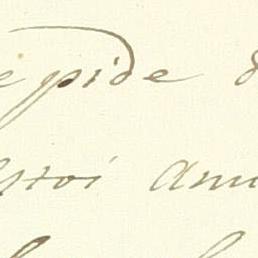 epide d
stoi ami